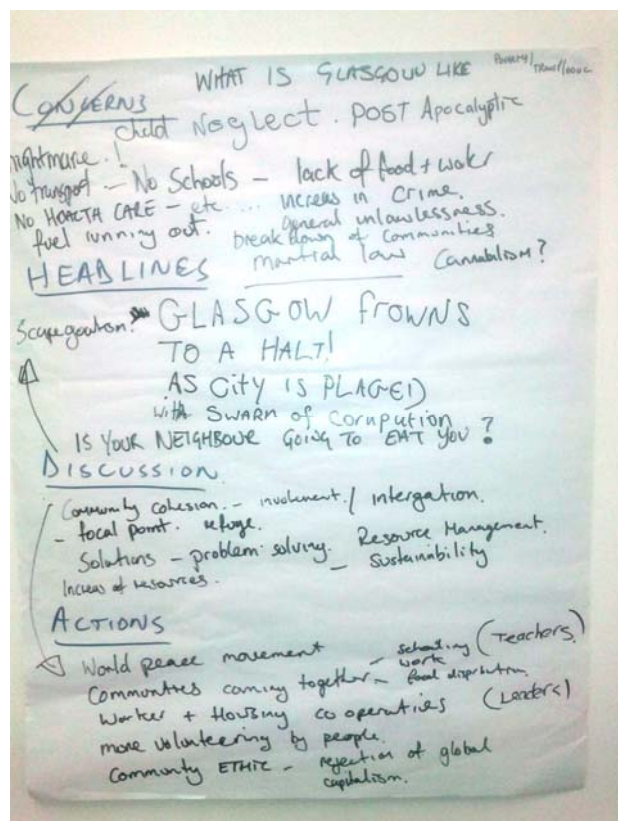 WHAT IS GLASGOW LIKE
CONCERNS
Child Neglect. POST Apocalyptic
nightmare.!
No transport - No Schools - lack of food + water
NO HEALTH CARE - etc.... increas in Crime.
fuel running out. general unlawlessness.
break down of communities
martial law Cannabilism?
HEADLINES
Scapegoation?
GLASGOW frowns
TO A HALT!
AS CITY IS PLAGED
with SWARM of Corruption
IS YOUR NEIGHBOUR GOING TO EAT YOU?
DISCUSSION
Community cohesion. - involvement / intergation.
- focal point. refuge.
Solutions - problem solving. Resource Management.
Increas of resources. - Sustainibility
ACTIONS
World peace movement - schooling (Teachers)
work
Communties coming together - food distribution.
Worker + Housing co operatives (Leaders)
more volunteering by people.
Community ETHIC - rejection of global
capitalism.